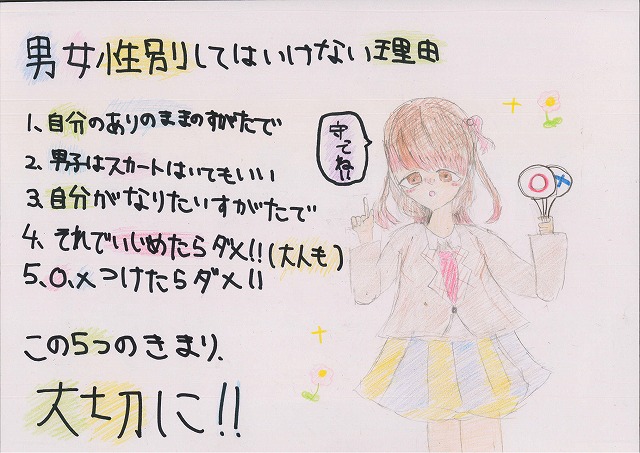 男女性別してはいけない理由
1、自分のありのままのすがたで
2、男子はスカートはいてもいい
3、自分がなりたいすがたで
4、それでいじめたらダメ!!(大人も)
5、○、×つけたらダメ!!
守ってね!!
この5つのきまり、
大切に!!